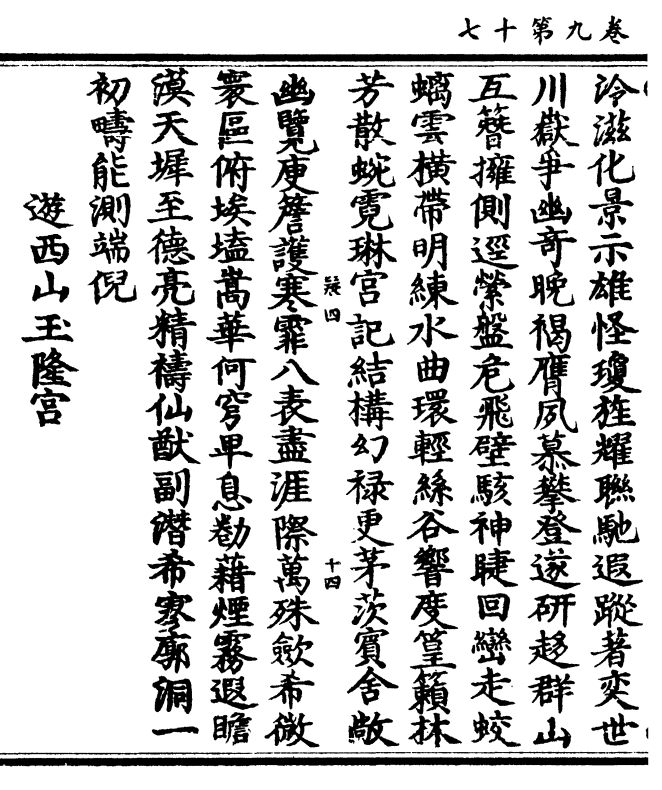 卷九第十七
泠滋化景示雄怪瓊旌耀聯馳遐蹤著奕世
川嶽爭幽竒晚褐膺夙慕攀登遂研趍群山
互簪擁側逕縈盤危飛壁駭神睫回巒走蛟
螭雲橫帶明練水曲環輕絲谷響度篁籟林
芳散蜿霓琳宫記結構幻祿更茅茨賓舍敞
疑四
十四
幽覽庚簷護寒霏八表盡涯際萬殊歛希微
寰區俯埃壒嵩華何穹卑息勌藉煙霧遐瞻
漠天墀至德亮精禱仙猷副潛希寥廓洞一
初疇能測端倪
遊西山玉隆宫